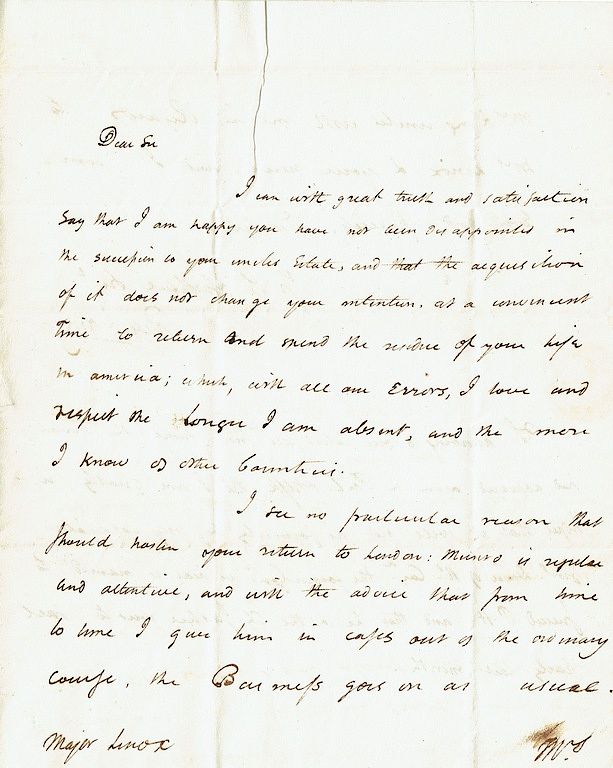 Dear Sir
I can with great truth and satisfaction
Say that I am happy you have not been disappointed in
the succession to your uncles Estate, and that the acquisition
of it does not change your intention, at a convenient
Time to return and spend the residue of your life
in america; which, with all our Errors, I love and
respect the Longer I am absent, and the more
I know of other Countries.
I see no particular reason that
Should hasten your return to London: Munro is regular
and attentive, and with the advice that from time
to time I give him in cases out of the ordinary
course, the Business goes on as usual.
Major Lenox
Mrs